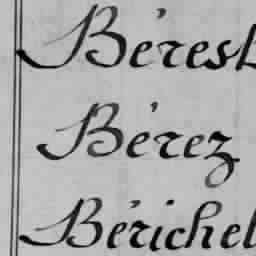 Bérest
Bérez
Bérichel